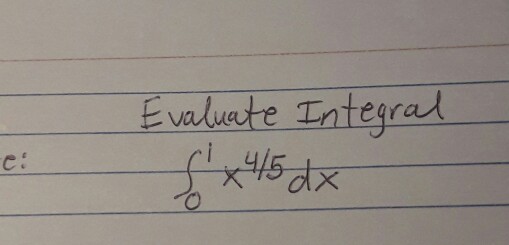 Evaluate Integral
e:
∫₀¹ x^4/5 dx